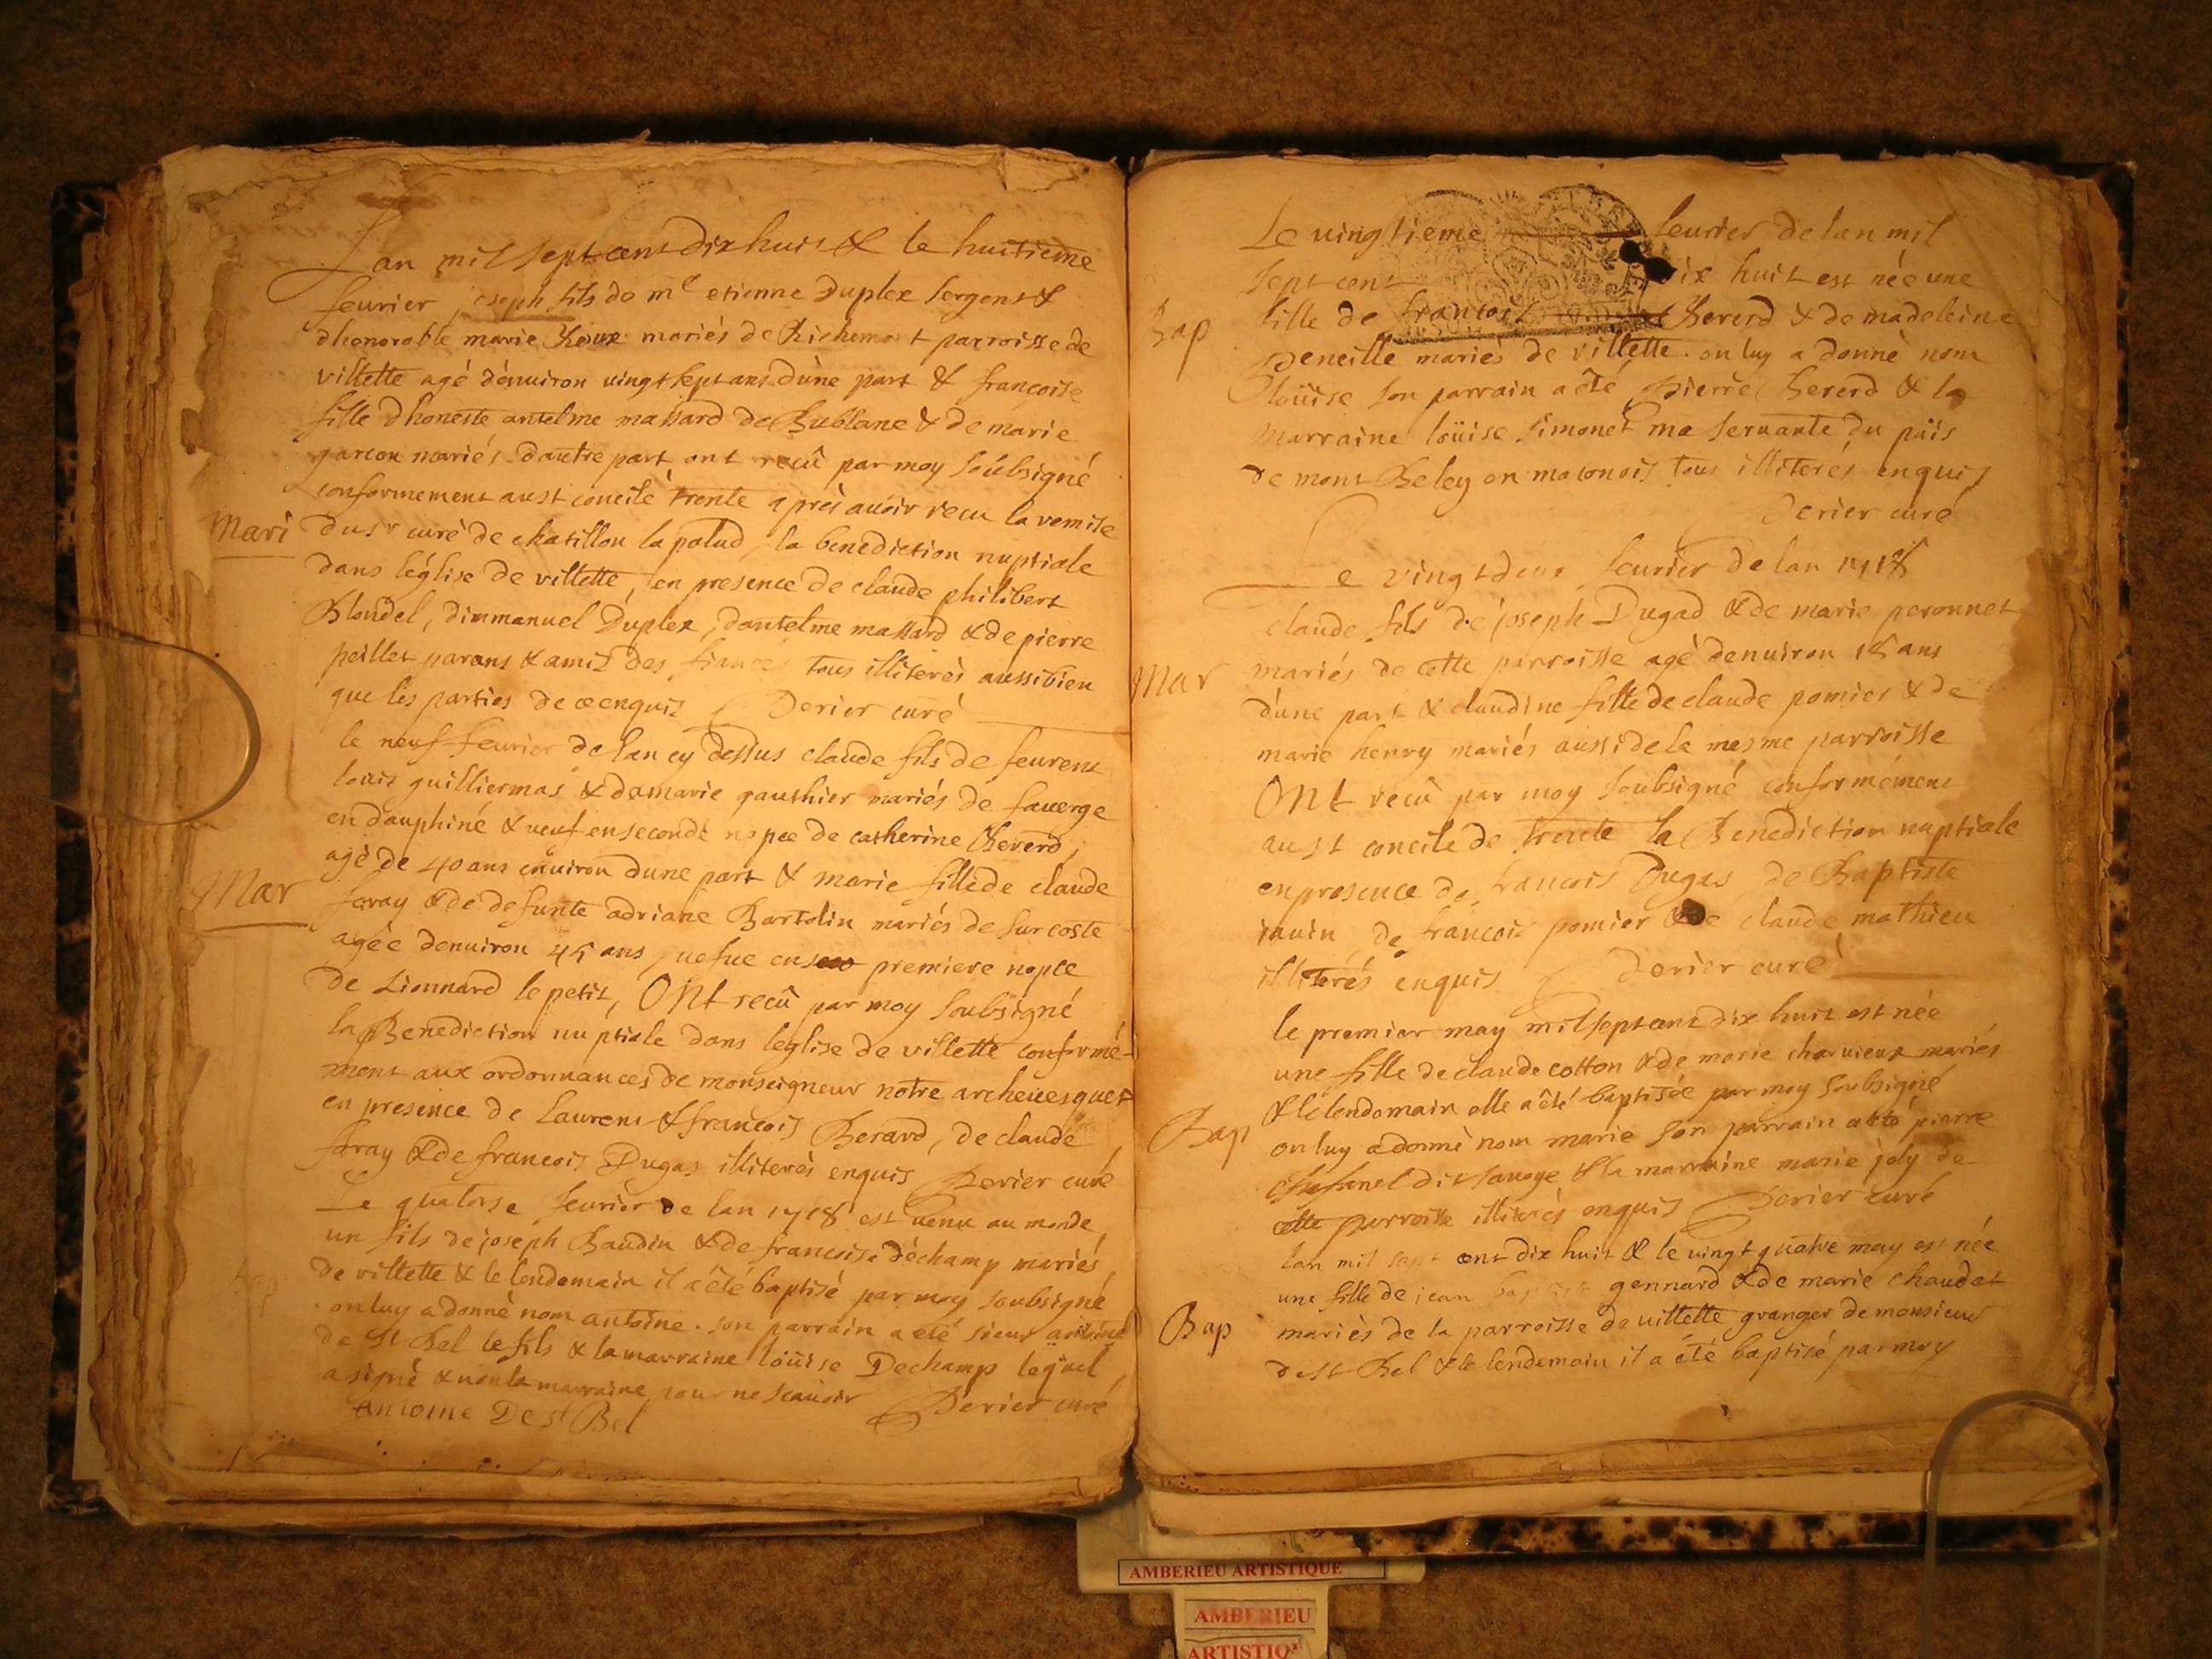 Lan mil sept cent dix huit & le huitieme
feurier joseph fils de me etienne Duplex sergent &
dhonorable marie Roux mariés de Richemont parroisse de
villette agé dénuiron uingt sept ans dùne part & françoise
fille dhoneste antelme massard de Bublane & de marie
garcon mariés dautre part ont recû par moy soubsigné
conformement au st concile trente après auoir recu la remise
Mari
du sr curé de chatillon la palud, la benediction nuptiale
dans léglise de villette, en presence de claude philibert
Blondel, dimmanuel Duplex, dantelme massard & de pierre
peillet parans & amis des fiances tous illiterés aussibien
que les parties de ce enquis Derier curé
le neuf feurier de lan cy dessus claude fils de feu rene
louis guilliermas & de marie gauthier mariés de fauerge
en dauphiné & ueuf en seconde nopce de catherine Beverd,
agé de 40 ans enuiron dune part & marie fille de claude
Mar
feray & de defunte adriane Bartolin mariés de sur coste
agée denuiron 45 ans, uefue en premiere nopce
de Lionnard le petit, ONt recû par moy soubsigné
la Benediction nuptiale dans léglise de villette conformé-
ment aux ordonnances de monseigneur notre archeuesque &
en presence de laurens & francois Berard, de claude
feray & de francois Dugas illiterés enquis Derier curé
Le quatorse feurier de lan 1718 est uenu au monde
un fils de joseph Baudin & de francoise déchamp mariés
Bap
de villette & le lendemain il a été baptisé par moy soubsigné
on luy a donné nom antoine. son parrain a eté sieur antoine
de St Bel le fils & la marraine loüise Dechamp lequel
a signé & non la marraine pour ne scauoir Derier curé
Antoine De st Bel
Le uingtieme feurier de lan mil
sept cent dix huit est née une
Bap
fille de francois Beverd & de madeleine
peneille mariés de villette. on luy a donné nom
loüise son parrain a été pierre Bererd & la
marraine loüise simonet ma seruante du païs
de mont Beley en maconois tous illiterés enquis
Derier curé
Le vingt deux feurier de lan 1718
claude fils de joseph Dugad & de marie peronnet
Mar
mariés de cette parroisse agé denuiron 18 ans
dune part & claudine fille de claude pomier & de
marie henry mariés aussi de la mesme parroisse
ONt recû par moy soubsigné conformément
au st concile de trente la Benediction nuptiale
en presence de francois Dugas de Baptiste
de francois pomier & de claude mathieu
illiterés enquis Derier curé
le premier may mil sept cent dix huit est née
une fille de claude cotton & de marie charuieux mariés
& le lendemain elle a été baptisée par moy soubsigné
Bap
on luy a donné nom marie son parrain a eté pierre
dit sauoye & la marraine marie joly de
cette parroisse illiterés enquis Derier curé
lan mil sept cent dix huit & le uingt quatre may est née
une fille de jean baptiste gennard & de marie chaudet
Bap
mariés de la parroisse de uillette granger de monsieur
de st Bel & le lendemain il a été baptisé par moy
AMBERIEU ARTISTIQUE
AMBERIEU
ARTISTIQ